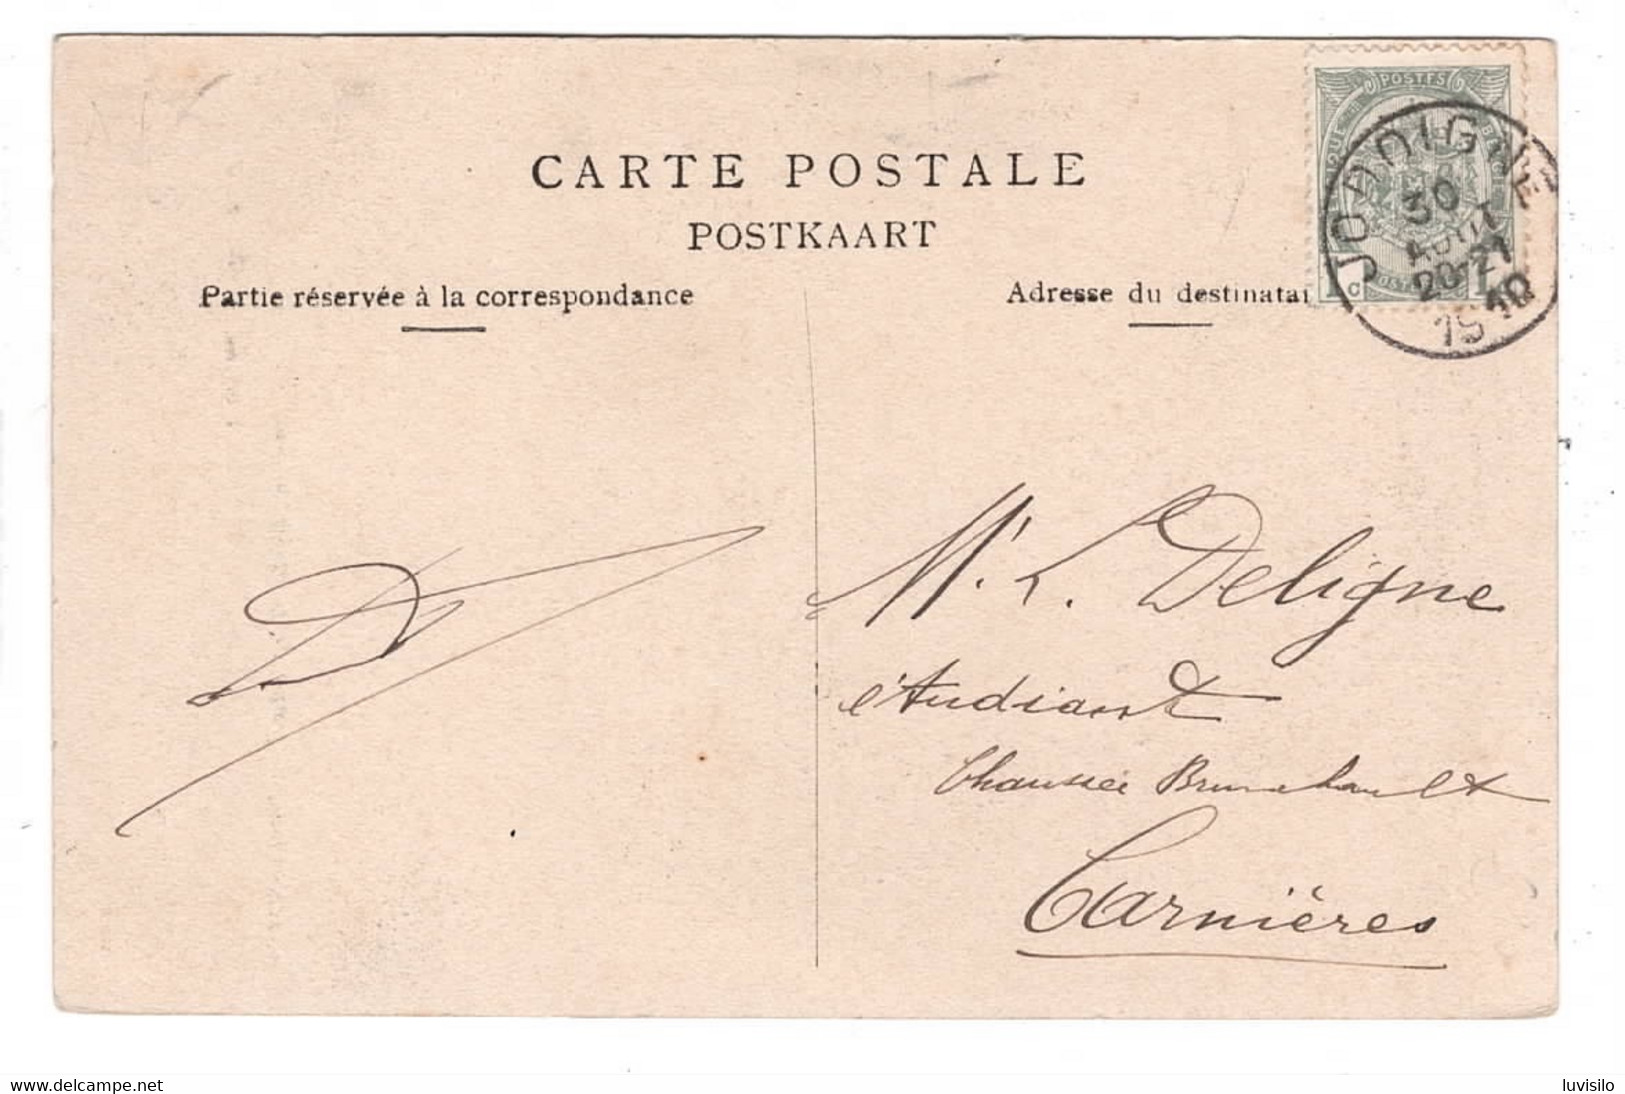 CARTE POSTALE
POSTKAART
Partie réservée à la correspondance
Adresse du destinatai
POSTES
1 C 1
JODOIGNE
30
AOUT
20-21
1910
Mr. L. Deligne
étudiant
Chaussée Brunehault
Carnières
www.delcampe.net
luvisilo